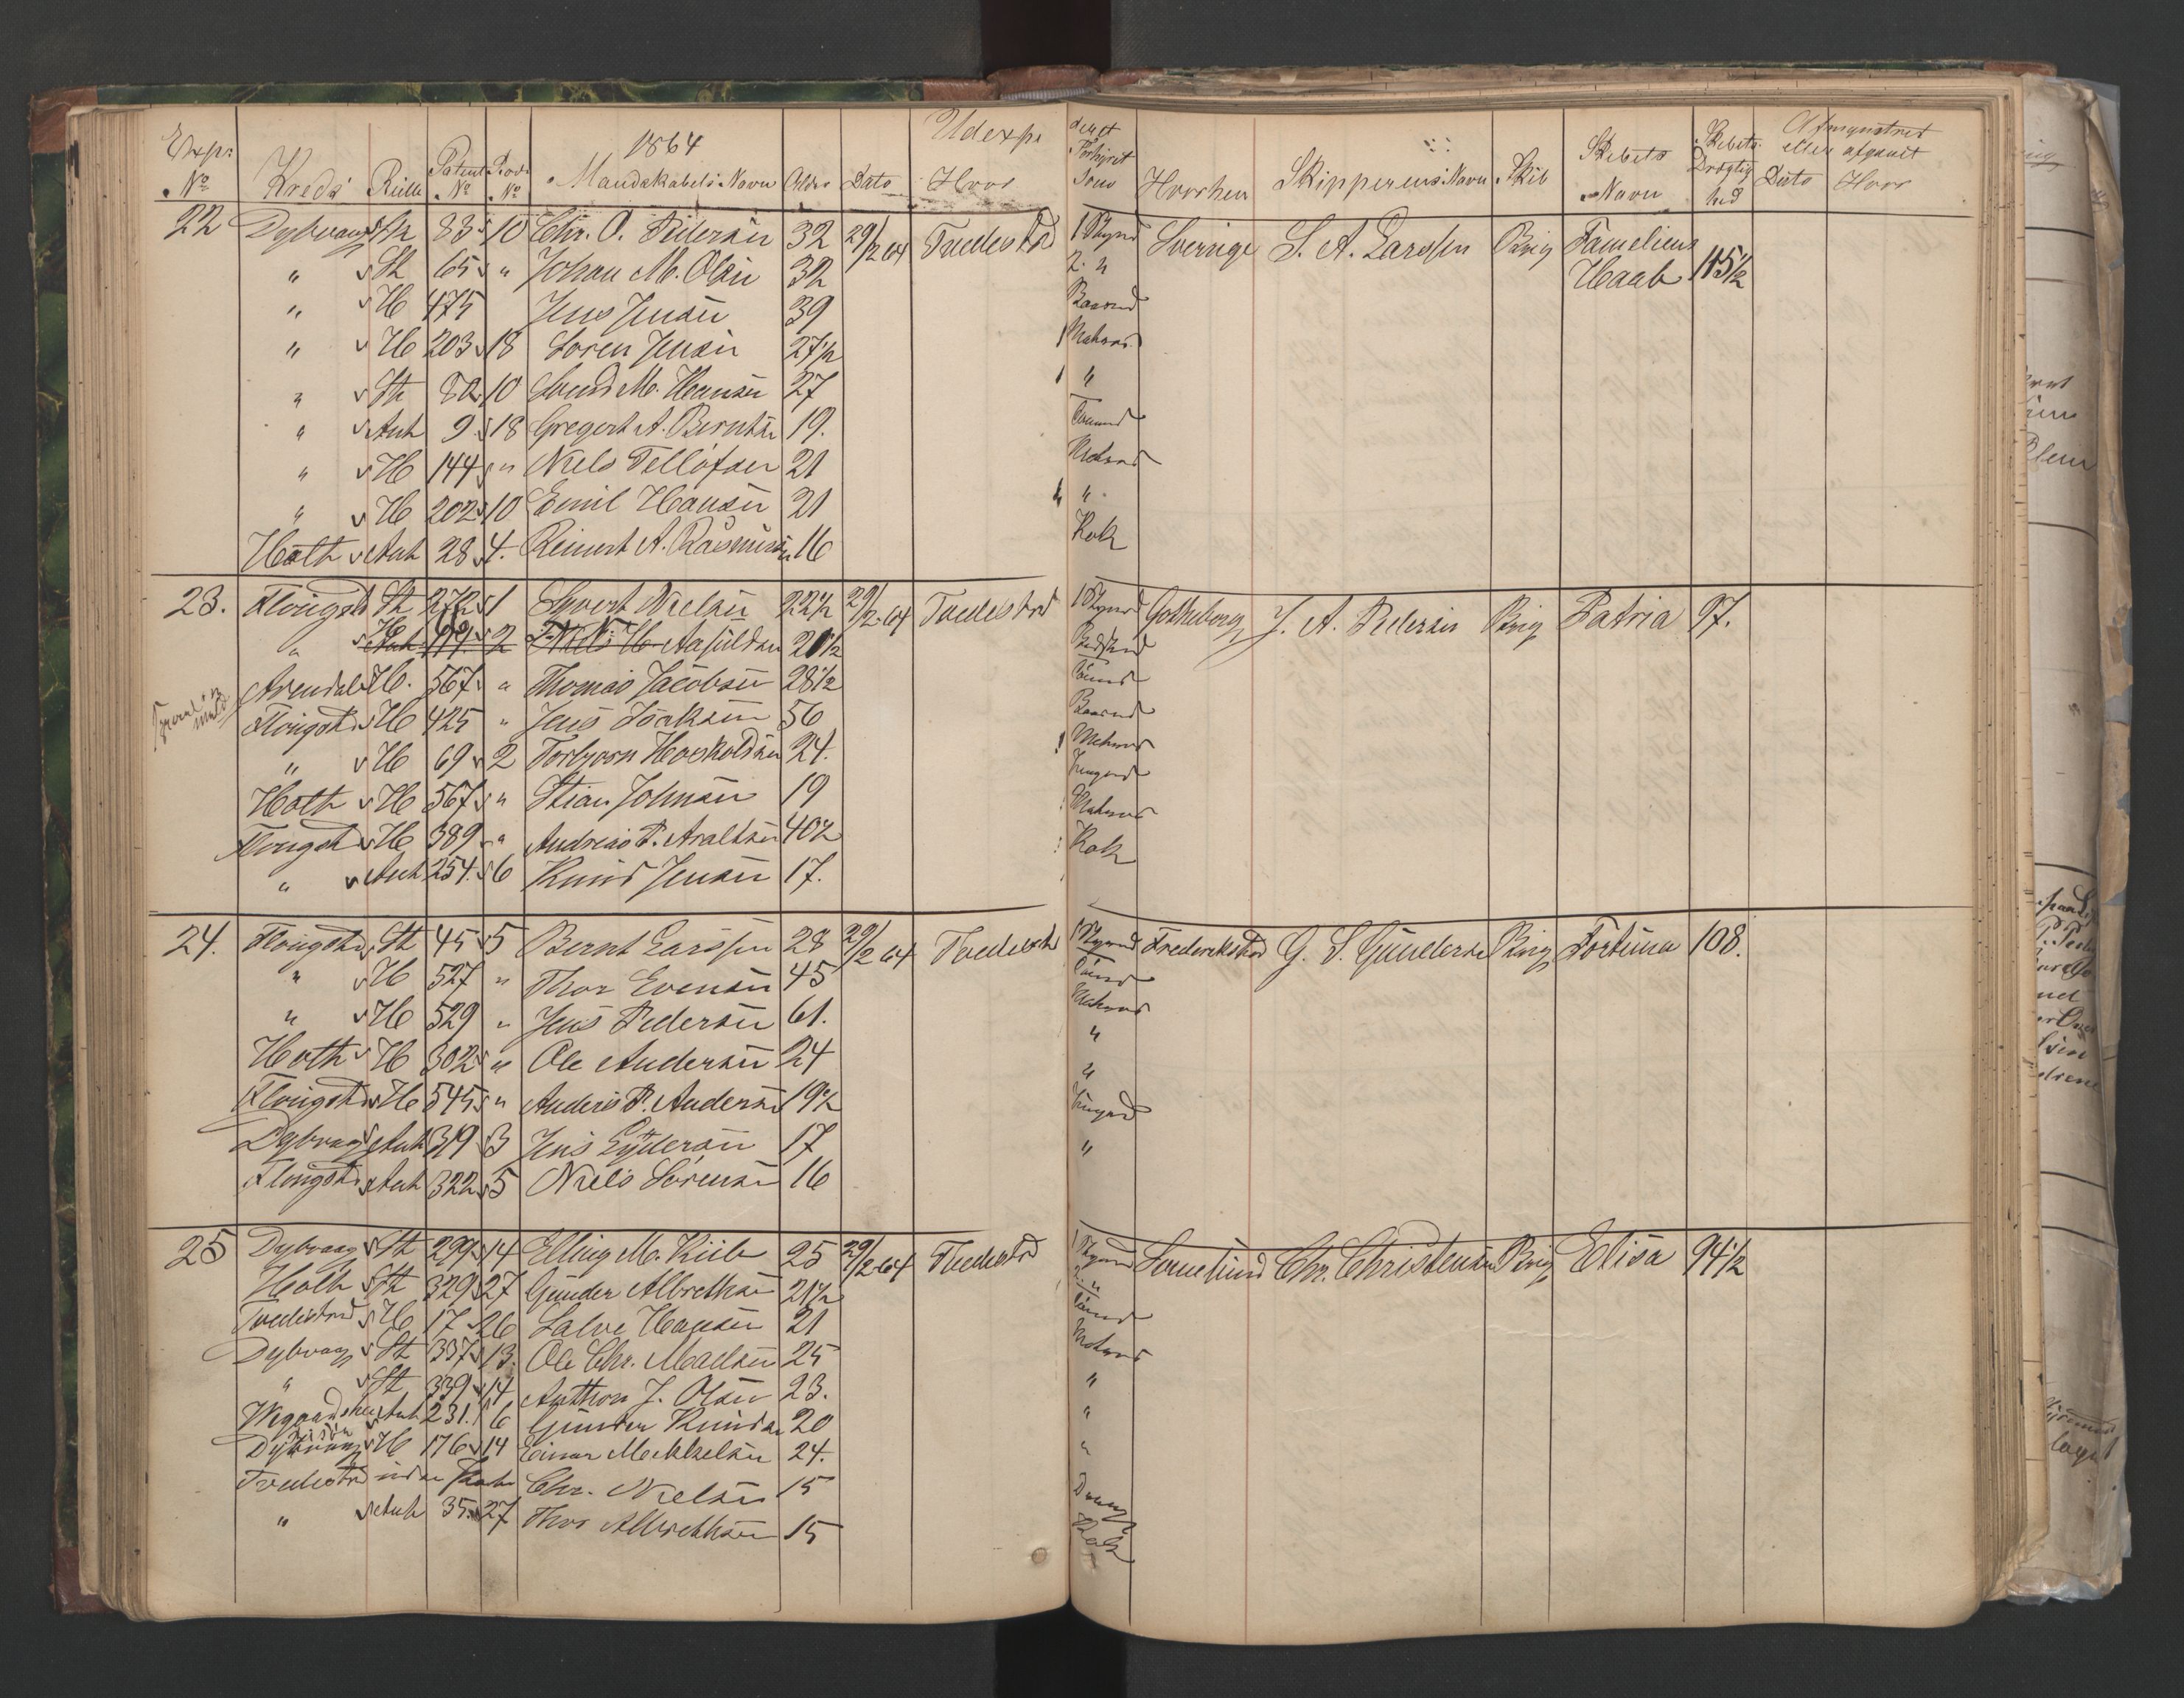 1864 Udexp
Exp: No Kreds Rulle Patent No Rode No Mandskabets Navn Alder Dato Hvor Forhyret som Hvorhen Skipperens Navn Skib Skibets Navn Skibets Drægtighed Afmynstret eller afgaaet Dato Hvor
22 Dybvaag St 83 10 Chr. O. Pedersen 32 29/2 64 Tvedestrd 1 Styrmd Sverige S. A. Larssen Brig Familiens Haab 115 1/2
" St 65 " Johan M. Olsen 32 2. "
" H 475 Jens Jensen 39 Baasmd
" H 203 18 Soren Jensen 27 1/2 Matros
" St 80 10 Svend M. Hansen 27 "
" Anh 9 18 Gregert A. Berntsen 19. Tømmd
" H 144 " Niels Tellofsen 21 Matros
" H 202 10 Emil Hansen 21 "
Holth Anh 28 4. Reinert A. Rasmusen 16 Kok
23. Flougst St 272 1 Syvert Nielsen 22 1/2 29/2 64 Tvedestrd 1 Styrmd Gotheborg J. A. Pedersen Brig Patria 97.
" 2 Niels H. Aasuldsen 20 1/2
Arendal H. 567 " Thomas Jacobsen 28 1/2 Tømmd
Flougst H 425 " Jens Isaksen 56 Baasmd
" H 69 2 Torbjorn Hoskoldsen 24. Matros
Holth H 567 " Stian Johnsen 19 Jungmd
Flougst H 389 " Andreas P. Araltsen 40 1/2 Matros
" Anh 254. 6 Knud Jensen 17. Kok
24. Flougst St 45 5 Bernt Larssen 28 29/2 64 Tvedestr 1 Styrmd Frederikstad G. S. Gundersen Brig Fortuna 108.
" H 527 " Thor Evensen 45 Tømmd
" H 529 " Jens Pedersen 61. Matros
Holth H 302 " Ole Andersen 24 "
Flougst H 545 " Anders P. Andersen 19 1/2 "
Dybvaag Anh 319 3 Jens Gydersen 17 Jungmd
Flougst Anh 322 5 Niels Sørensen 16 "
25 Dybvaag St 299 14 Elling M. Kiil 25 29/2 64 Tvedestrd 1 Styrmd Chr. Christensen Brig Elisa 94 1/2
Holth St 329 27 Gunder Albrethsen 21 1/2 2. "
Tvedestrd H 17 26 Salve Hansen 21 Tømmd
Dybvaag St 337 13. Ole Chr. Madsen 25 Matros
" St 339 14 Anthon J. Olsen 23. "
Wegaardsheien Anh 231. 6 Gunder Knudsen 20 "
Dybvaag H 176 14 Einar Mekkelsen 24. "
Tvedestrd Chr. Nielsen 15
" Anh 35. 27 Thor Albrethsen 15 Kok